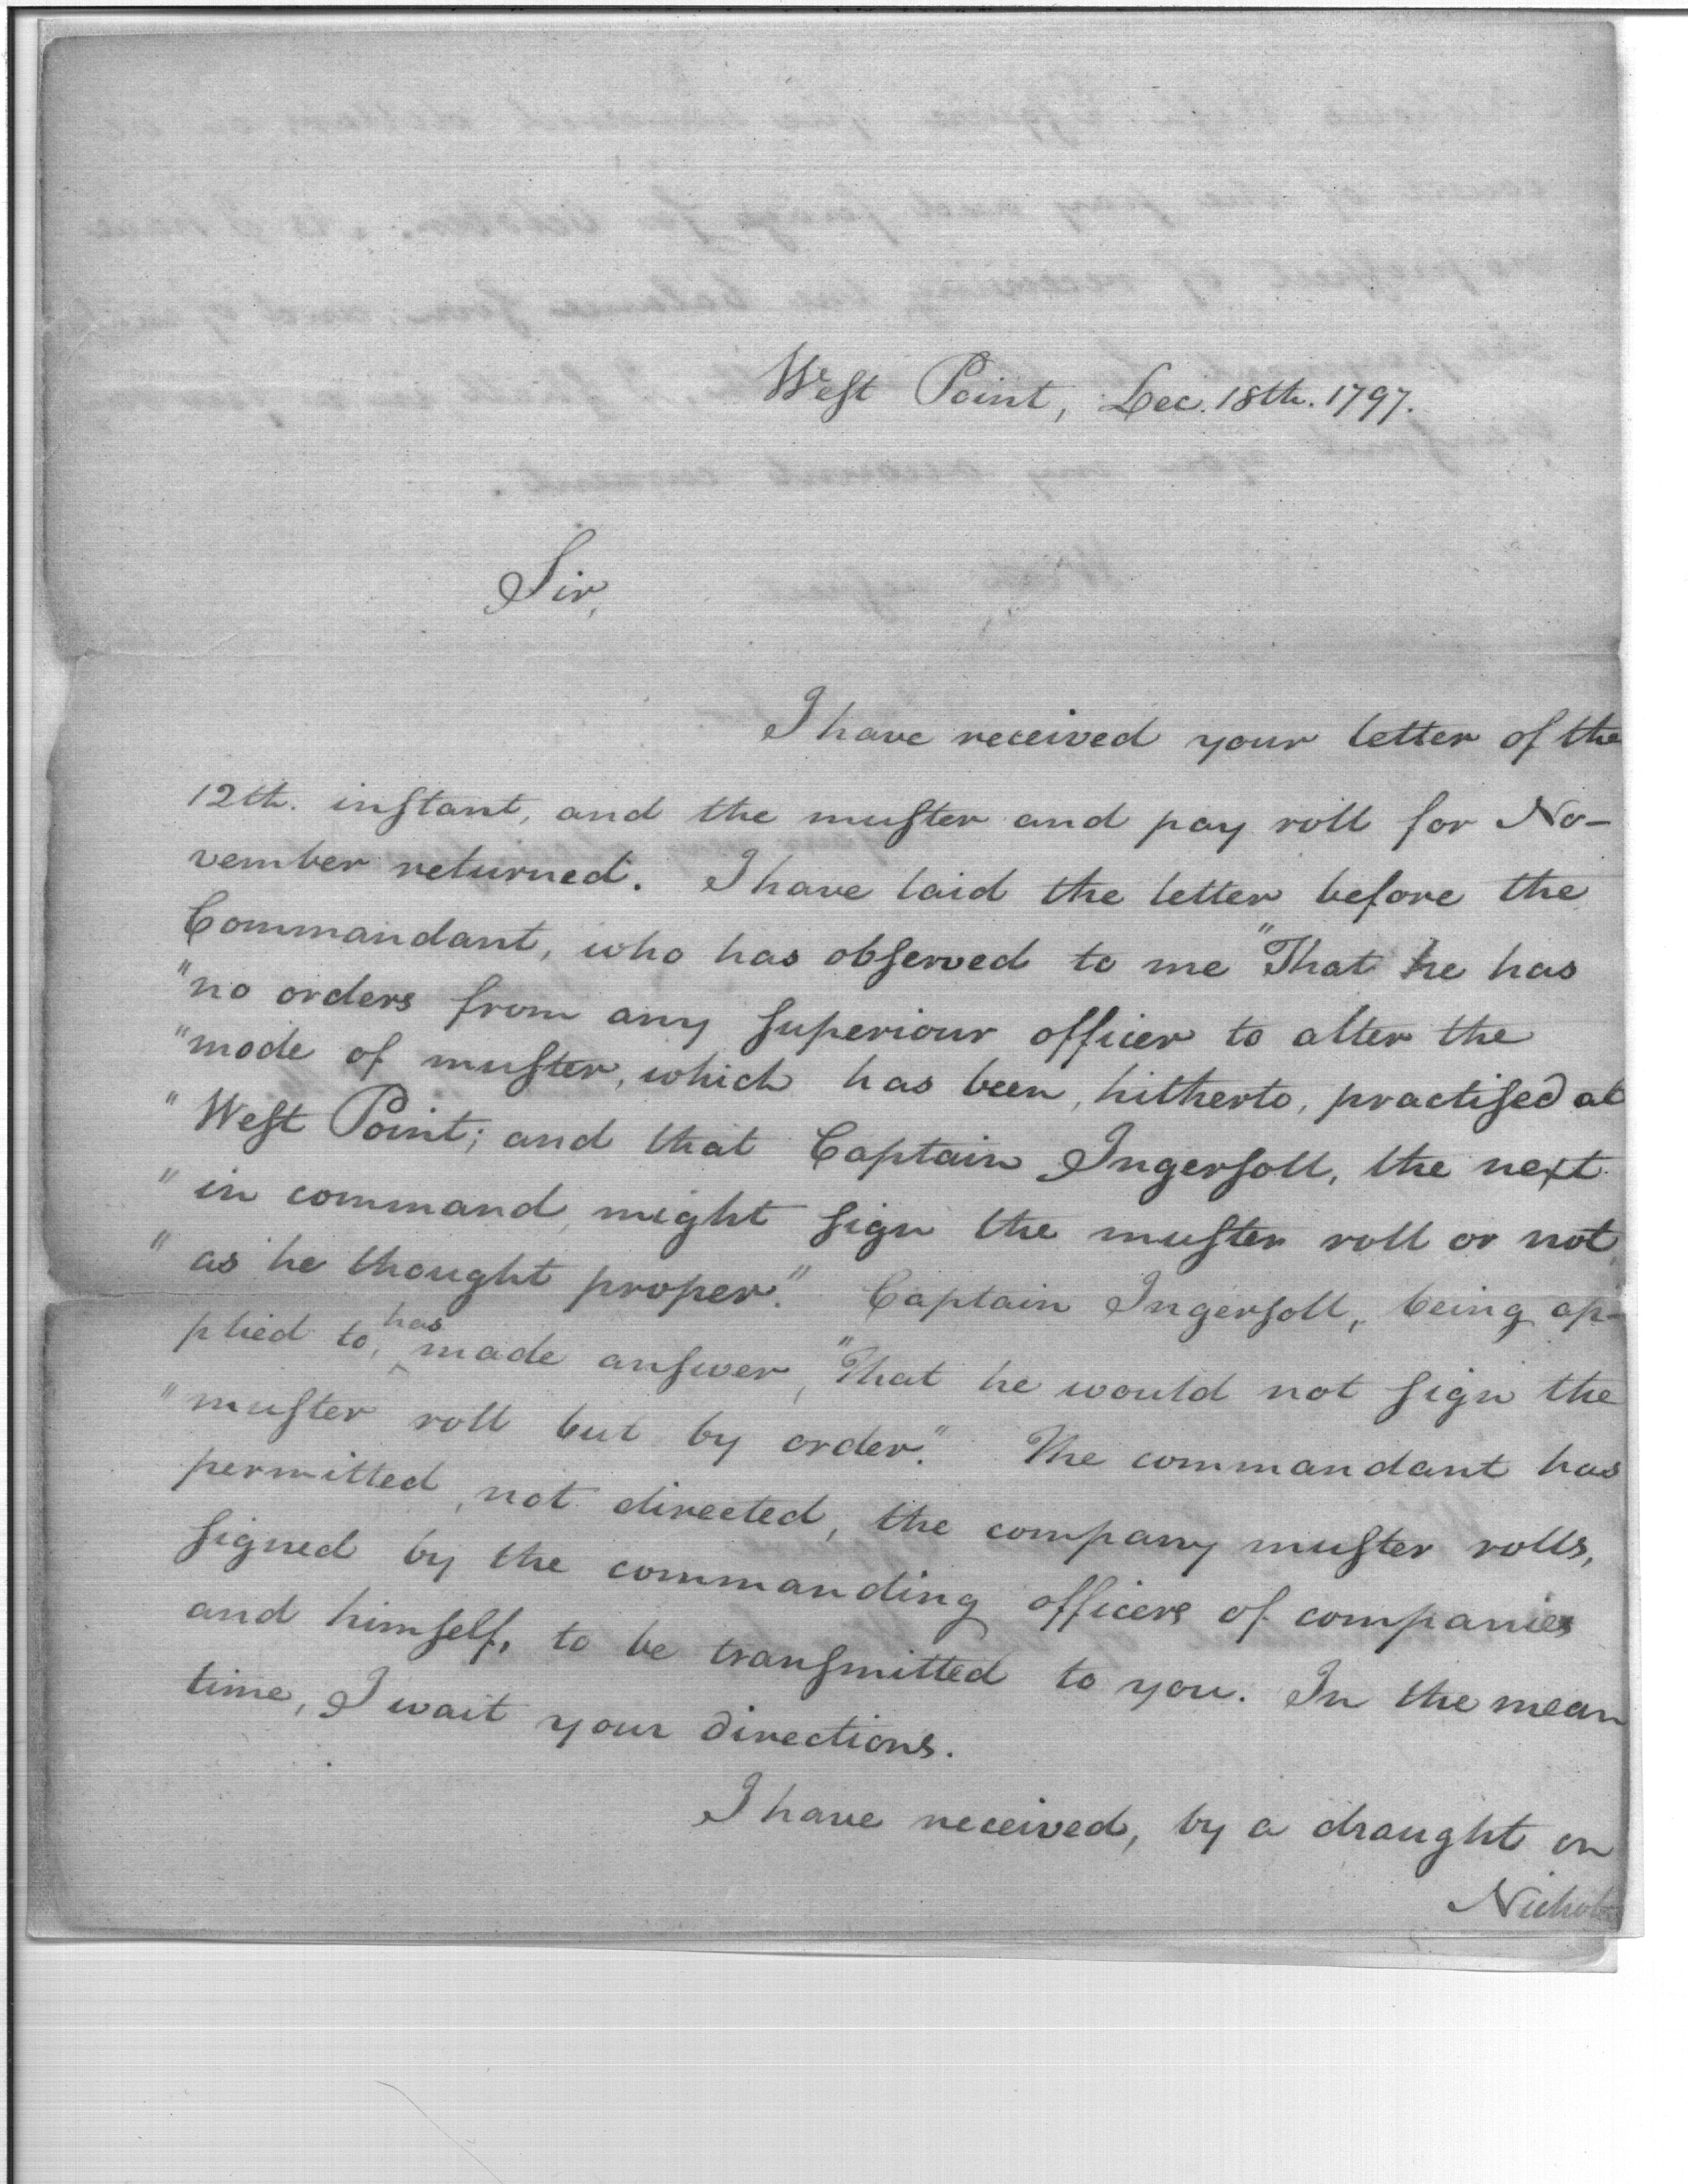 West Point, Dec. 18th. 1797.
Sir,
I have received your letter of the
12th. instant, and the muster and pay roll for No-
vember returned. I have laid the letter before the
Commandant, who has observed to me "That he has
"no orders from any superiour officer to alter the
"mode of muster, which has been, hitherto, practised at
"West Point; and that Captain Ingersoll, the next
"in command, might sign the muster roll or not,
"as he thought proper." Captain Ingersoll, being ap-
plied to, has made answer, "That he would not sign the
"muster roll but by order." The commandant has
permitted, not directed, the company muster rolls,
signed by the commanding officers of companies
and himself, to be transmitted to you. In the mean
time, I wait your directions.
I have received, by a draught on